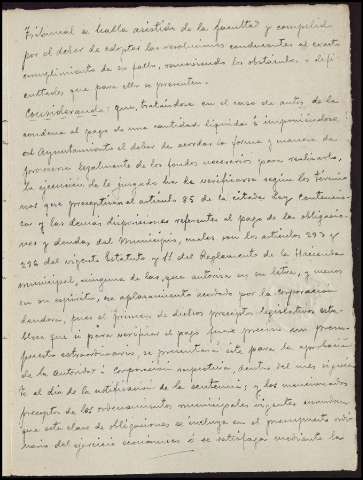 Tribunal se halla asistido de la facultad y compelido
por el deber de adoptar las resoluciones conducentes al exacto
cumplimiento de su fallo, removiendo los obstáculos o difi-
cultades que para ello se presenten.
Considerando: que, tratándose en el caso de autos de la
condena al pago de una cantidad líquida é imponiéndose
al Ayuntamiento el deber de acordar la forma y manera de
procurarse legalmente de los fondos necesarios para realizarlo,
la ejecución de lo juzgado ha de verificarse según los térmi-
nos que preceptúan el artículo 85 de la citada ley contencio-
sa y las demás disposiciones referentes al pago de las obligacio-
nes y deudas del Municipio, cuales son los artículos 293 y
296 del vigente Estatuto y 11 del Reglamento de la Hacienda
municipal, ninguna de las que autoriza en su letra, y menos
en su espíritu, un aplazamiento acordado por la corporación
deudora, pues el primero de dichos preceptos legislativos esta-
blece que si para verificar el pago fuese preciso un presu-
puesto extraordinario, se presentará este para la aprobación
de la autoridad ó Corporación superior, dentro del mes siguien-
te al día de la notificación de la sentencia; y los mencionados
preceptos de los ordenamientos municipales vigentes
que esta clase de obligaciones se incluya en el presupuesto ordi-
nario del ejercicio económico ó se satisfaga mediante la